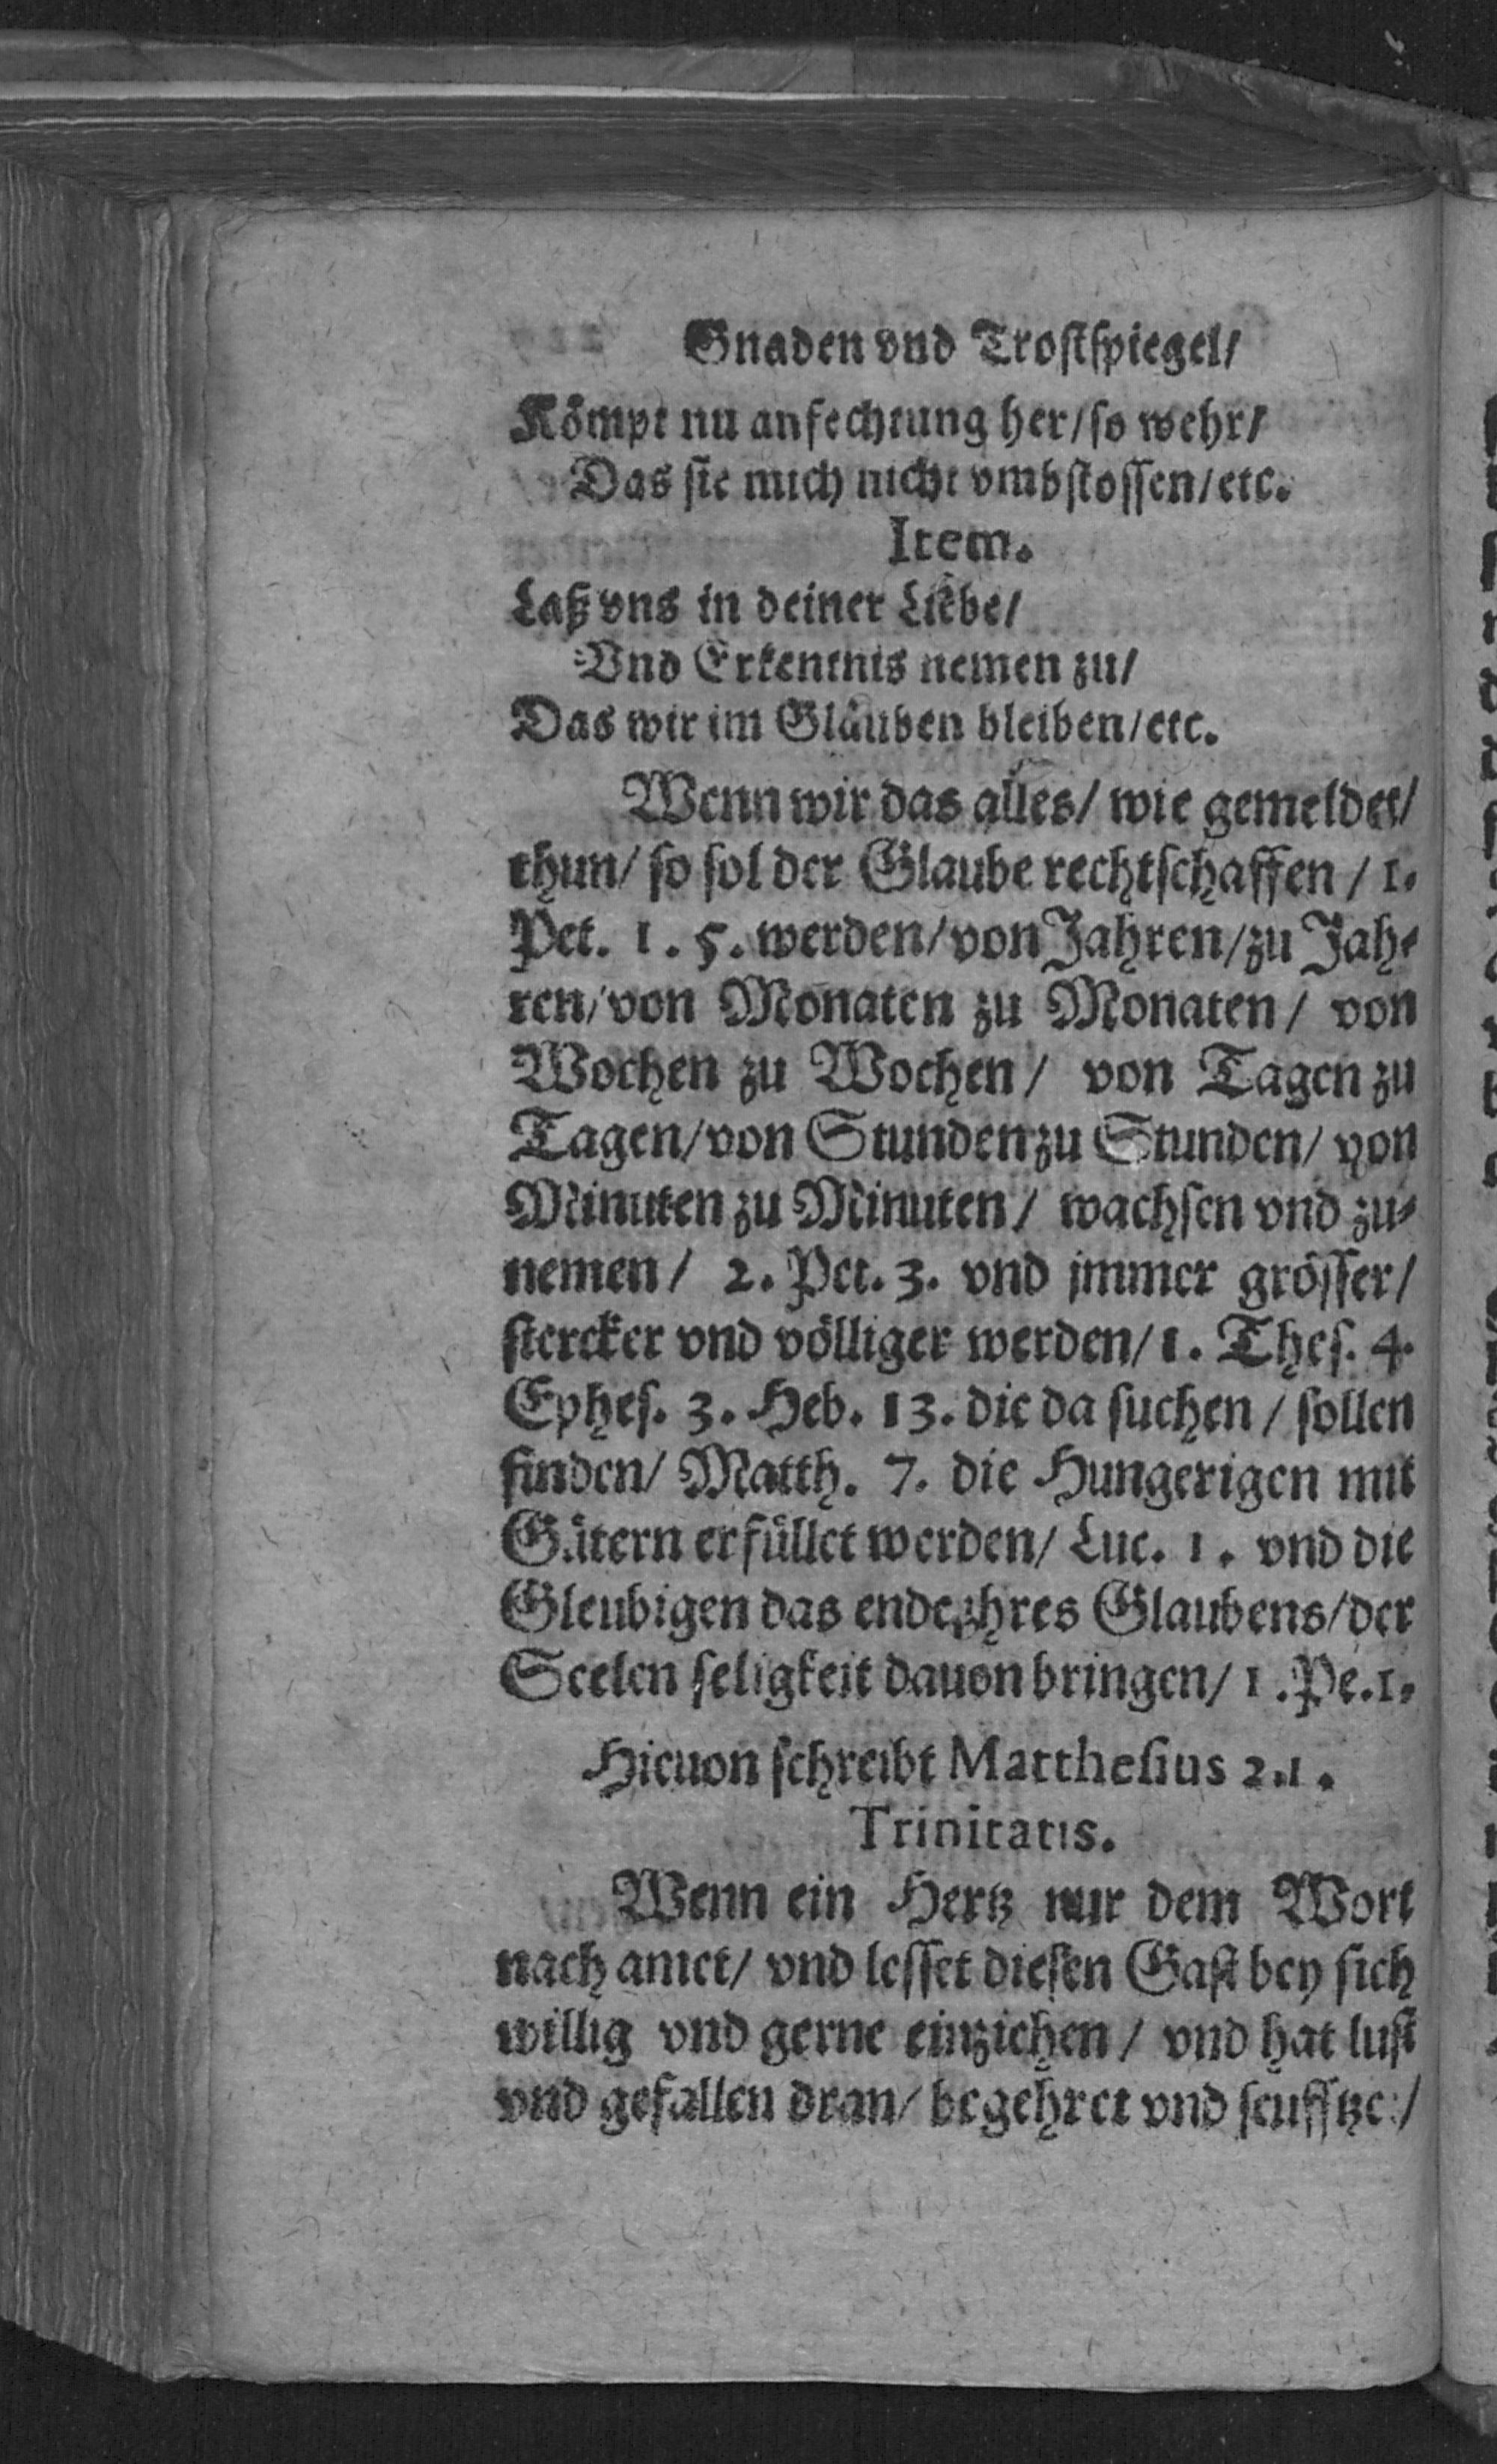 Gnaden vnd Trostspiegel/
Kömpt nu anfechtung her/ so wehr/
Das sie mich nicht vmbstossen/ etc.
Item.
Laß vns in deiner Liebe/
Vnd Erkentnis nemen zu/
Das wir im Glauben bleiben/ etc.
Wenn wir das alles/ wie gemeldet/
thun/ so sol der Glaube rechtschaffen / 1.
Pet. 1. 5. werden/ von Jahren/ zu Jah-
ren/ von Monaten zu Monaten / von
Wochen zu Wochen / von Tagen zu
Tagen/ von Stunden zu Stunden/ von
Minuten zu Minuten / wachsen vnd zu-
nemen / 2. Pet. 3. vnd jmmer grösser/
stercker vnd völliger werden/ 1. Thes. 4.
Ephes. 3. Heb. 13. die da suchen / sollen
finden/ Matth. 7. die Hungerigen mit
Gütern erfüllet werden/ Luc. 1. vnd die
Gleubigen das ende jhres Glaubens/ der
Seelen seligkeit dauon bringen/ 1. Pe. 1.
Hieuon schreibt Matthesius 21.
Trinitatis.
Wenn ein Hertz nur dem Wort
nach amet/ vnd lesset diesen Gast bey sich
willig vnd gerne einziehen / vnd hat lust
vnd gefallen dran/ begehret vnd seufftzet/